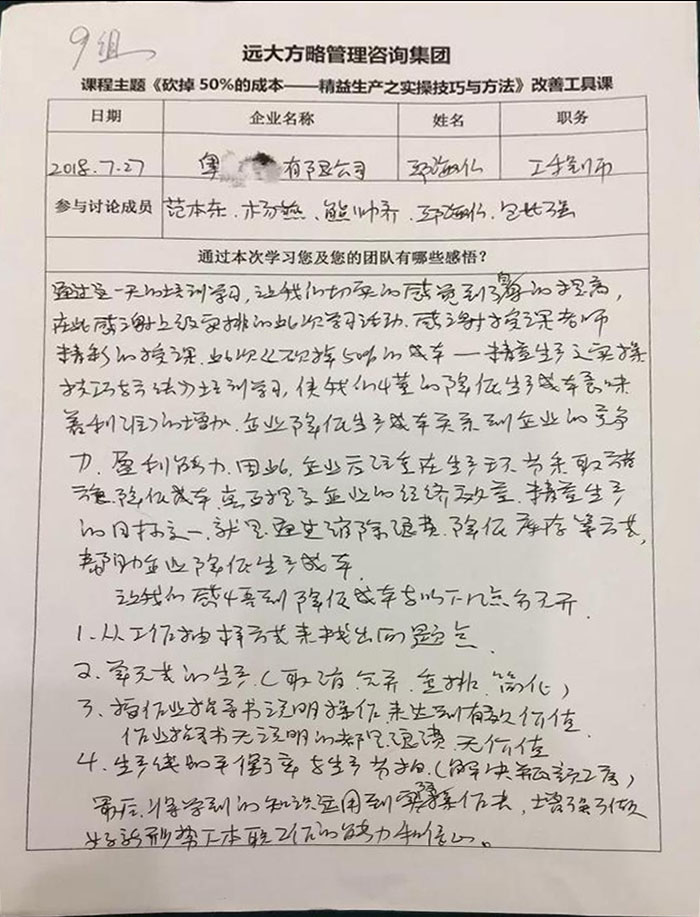 9组
远大方略管理咨询集团
课程主题《砍掉50%的成本——精益生产之实操技巧与方法》改善工具课
日期 企业名称 姓名 职务
2018.7.27 奥 有限公司 邓海仏 工程师
参与讨论成员 范本东、杨燕、熊帅乔、邓海仏、包长强
通过本次学习您及您的团队有哪些感悟?
通过这一天的培训学习,让我们切实的感觉到 的提高,
在此感谢上级安排的此次学习活动.感谢授课老师
精彩的授课.此次《砍掉50%的成本—精益生产之实操
技巧与方法》培训学习,使我们懂的降低生产成本意味
着利润的增加.企业降低生产成本关系到企业的竞争
力.盈利能力.因此,企业应注重在生产环节采取措
施降低成本,真正提高企业的经济效益.精益生产
的目标之一,就是通过缩除浪费.降低库存等方式,
帮助企业降低生产成本.
让我们感悟到降低成本与以下几点分不开.
1.从工作抽样方式来找出问题点.
2.单元式的生产.(取消、合并、重排、简化)
3.按作业指导书说明操作来达到有效价值.
作业指导书无说明的都是浪费 无价值
4.生产线的平衡率与生产节拍.(解决瓶颈工序)
最后.将学到的知识运用到 操作去,增强了做
好新形势下本职工作的能力和信心。